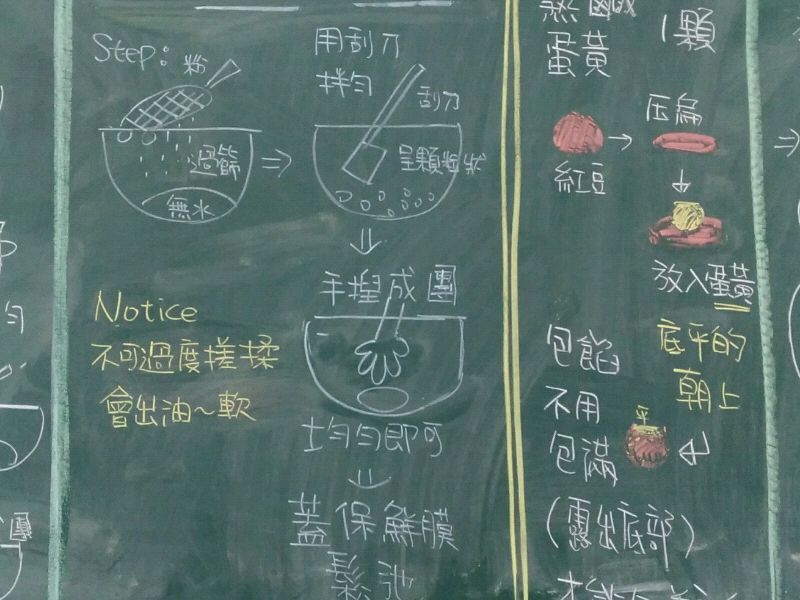 Step:
粉
過篩
無水
用刮刀
拌勻
刮刀
呈顆粒狀
手捏成團
均勻即可
蓋保鮮膜
鬆弛
Notice
不可過度搓揉
會出油~軟
蛋黃
1顆
紅豆
压扁
放入蛋黃
底平的
朝上
包餡
不用
包滿
平
(露出底部)
勻
團